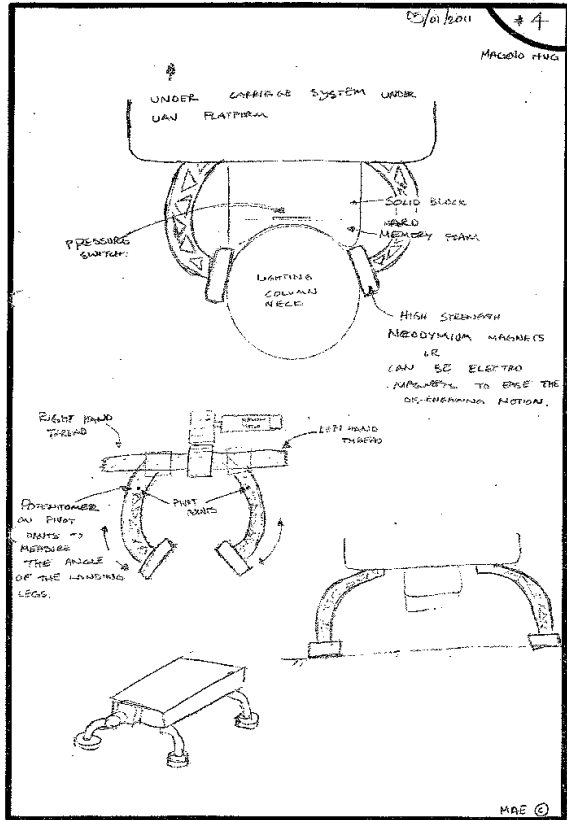 05/01/2011
#4
MAGNO HUG
UNDER CARRIGE SYSTEM UNDER
UAV PLATFORM
PRESSURE
SWITCH.
SOLID BLOCK
HARD
MEMORY FOAM
LIGHTING
COLUMN
NECK
HIGH STRENGTH
NEODYMIUM MAGNETS
OR
CAN BE ELECTRO
MAGNETS TO EASE THE
DIS-ENGAGING MOTION.
RIGHT HAND
THREAD
LEFT HAND
THREAD
PIVOT
POINTS
POTENTOMER
ON PIVOT
POINTS TO
MEASURE
THE ANGLE
OF THE LANDING
LEGS.
MAE ©